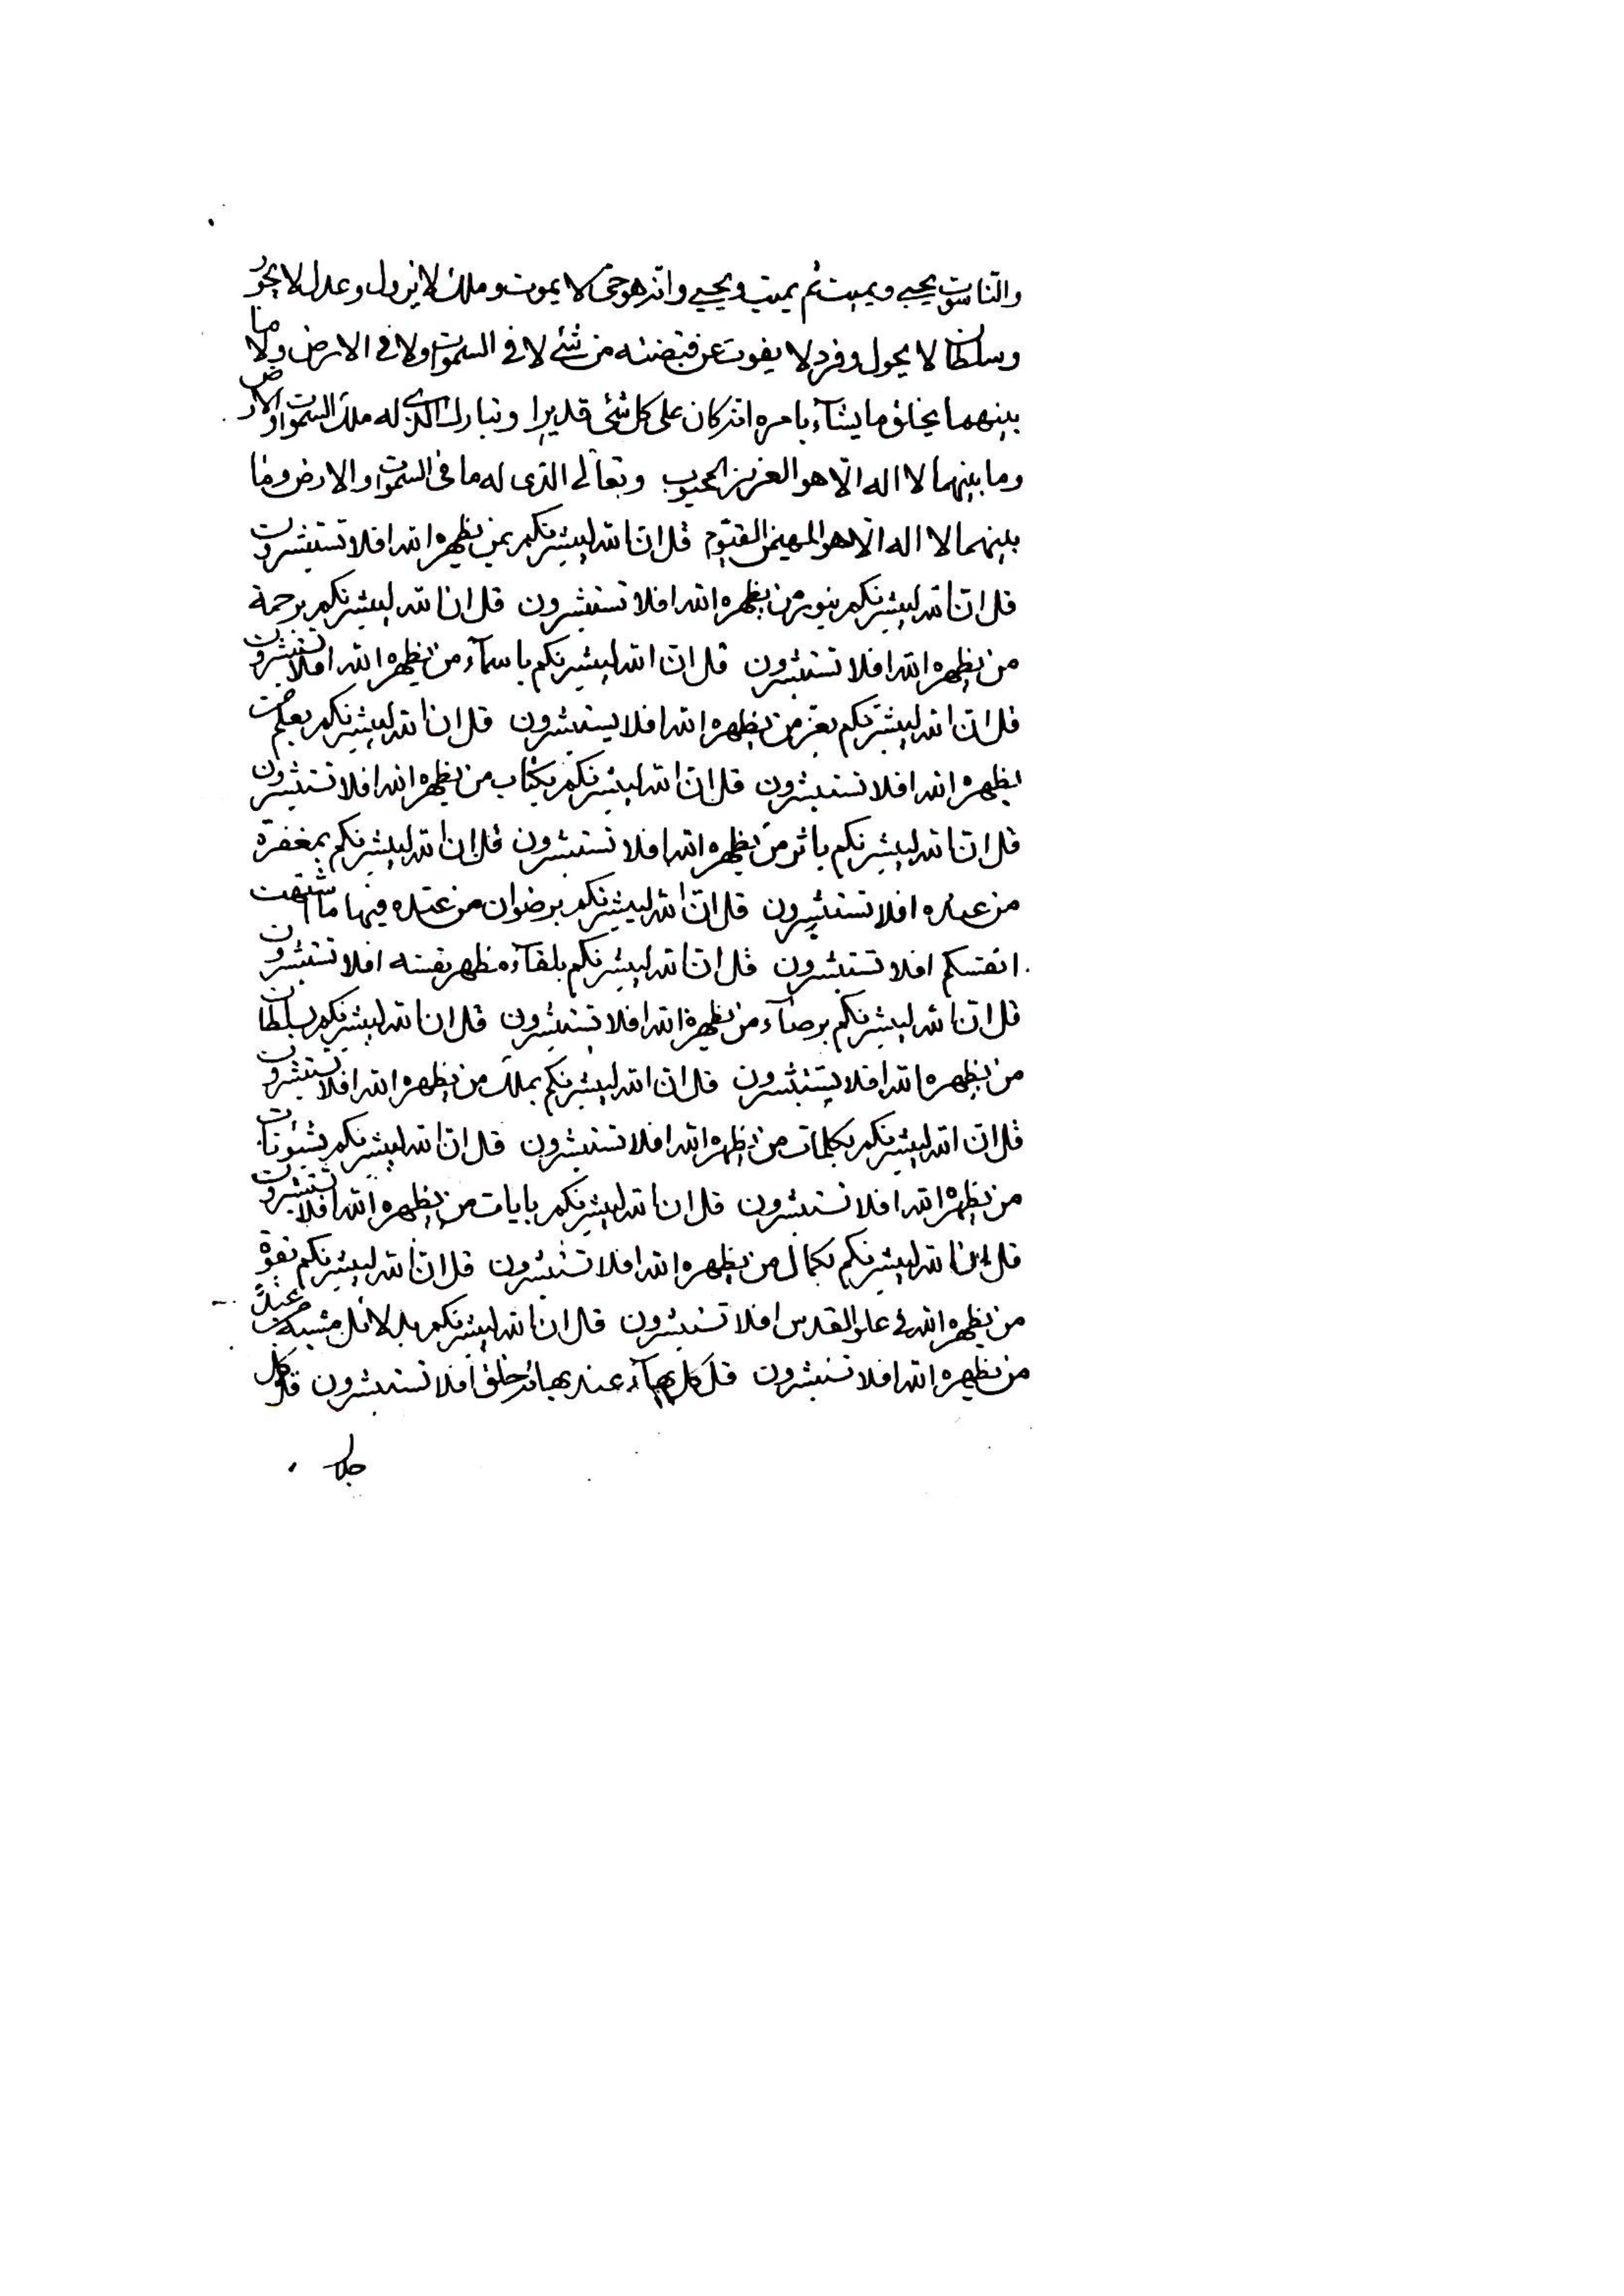 والناسوت يحيي ويميت ثم يميت ويحيي وانه هو حي لا يموت وملك لا يزول وعدل لا يجور
وسلطان لا يحول وفرد لا يفوت عن قبضته من شئ لا في السموات ولا في الارض ولا ما
بينهما يخلق ما يشآء بامره انه كان على كل شئ قديرا وتبارك الذي له ملك السموات والارض
وما بينهما لا اله الا هو العزيز المحبوب وتعالى الذي له ما في السموات والارض وما
بينهما لا اله الا هو المهيمن القيوم قل ان الله ليبشرنكم بمن يظهره الله افلا تستبشرون
قل ان الله ليبشرنكم بنور من يظهره الله افلا تستبشرون قل ان الله ليبشرنكم برحمة
من يظهره الله افلا تستبشرون قل ان الله ليبشرنكم باسمآء من يظهره الله افلا تستبشرون
قل ان الله ليبشرنكم بعز من يظهره الله افلا يستبشرون قل ان الله ليبشرنكم بعلم من
يظهره الله افلا تستبشرون قل ان الله ليبشرنكم بكتاب من يظهره الله افلا تستبشرون
قل ان الله ليبشرنكم باثر من يظهره الله افلا تستبشرون قل ان الله ليبشرنكم بمغفرة
من عباده افلا تستبشرون قل ان الله ليبشرنكم برضوان من عنده فيها ما اشتهت
انفسكم افلا تستبشرون قل ان الله ليبشرنكم بلقآء مظهر نفسه افلا تستبشرون
قل ان الله ليبشرنكم برضآء من يظهره الله افلا تستبشرون قل ان الله ليبشرنكم بسلطان
من يظهره الله افلا يستبشرون قل ان الله ليبشرنكم بملك من يظهره الله افلا تستبشرون
قل ان الله ليبشرنكم بكلمات من يظهره الله افلا تستبشرون قل ان الله ليبشرنكم بشئونات
من يظهره الله افلا تستبشرون قل ان الله ليبشرنكم بايات من يظهره الله افلا تستبشرون
قل ان الله ليبشرنكم بكمال من يظهره الله افلا تستبشرون قل ان الله ليبشرنكم بقوة
من يظهره الله في علو القدس افلا تستبشرون قل ان الله ليبشرنكم بدلائل
من يظهره الله افلا تستبشرون قل كل بهآء عند بهائه خلق افلا تستبشرون قل وكل
جلال